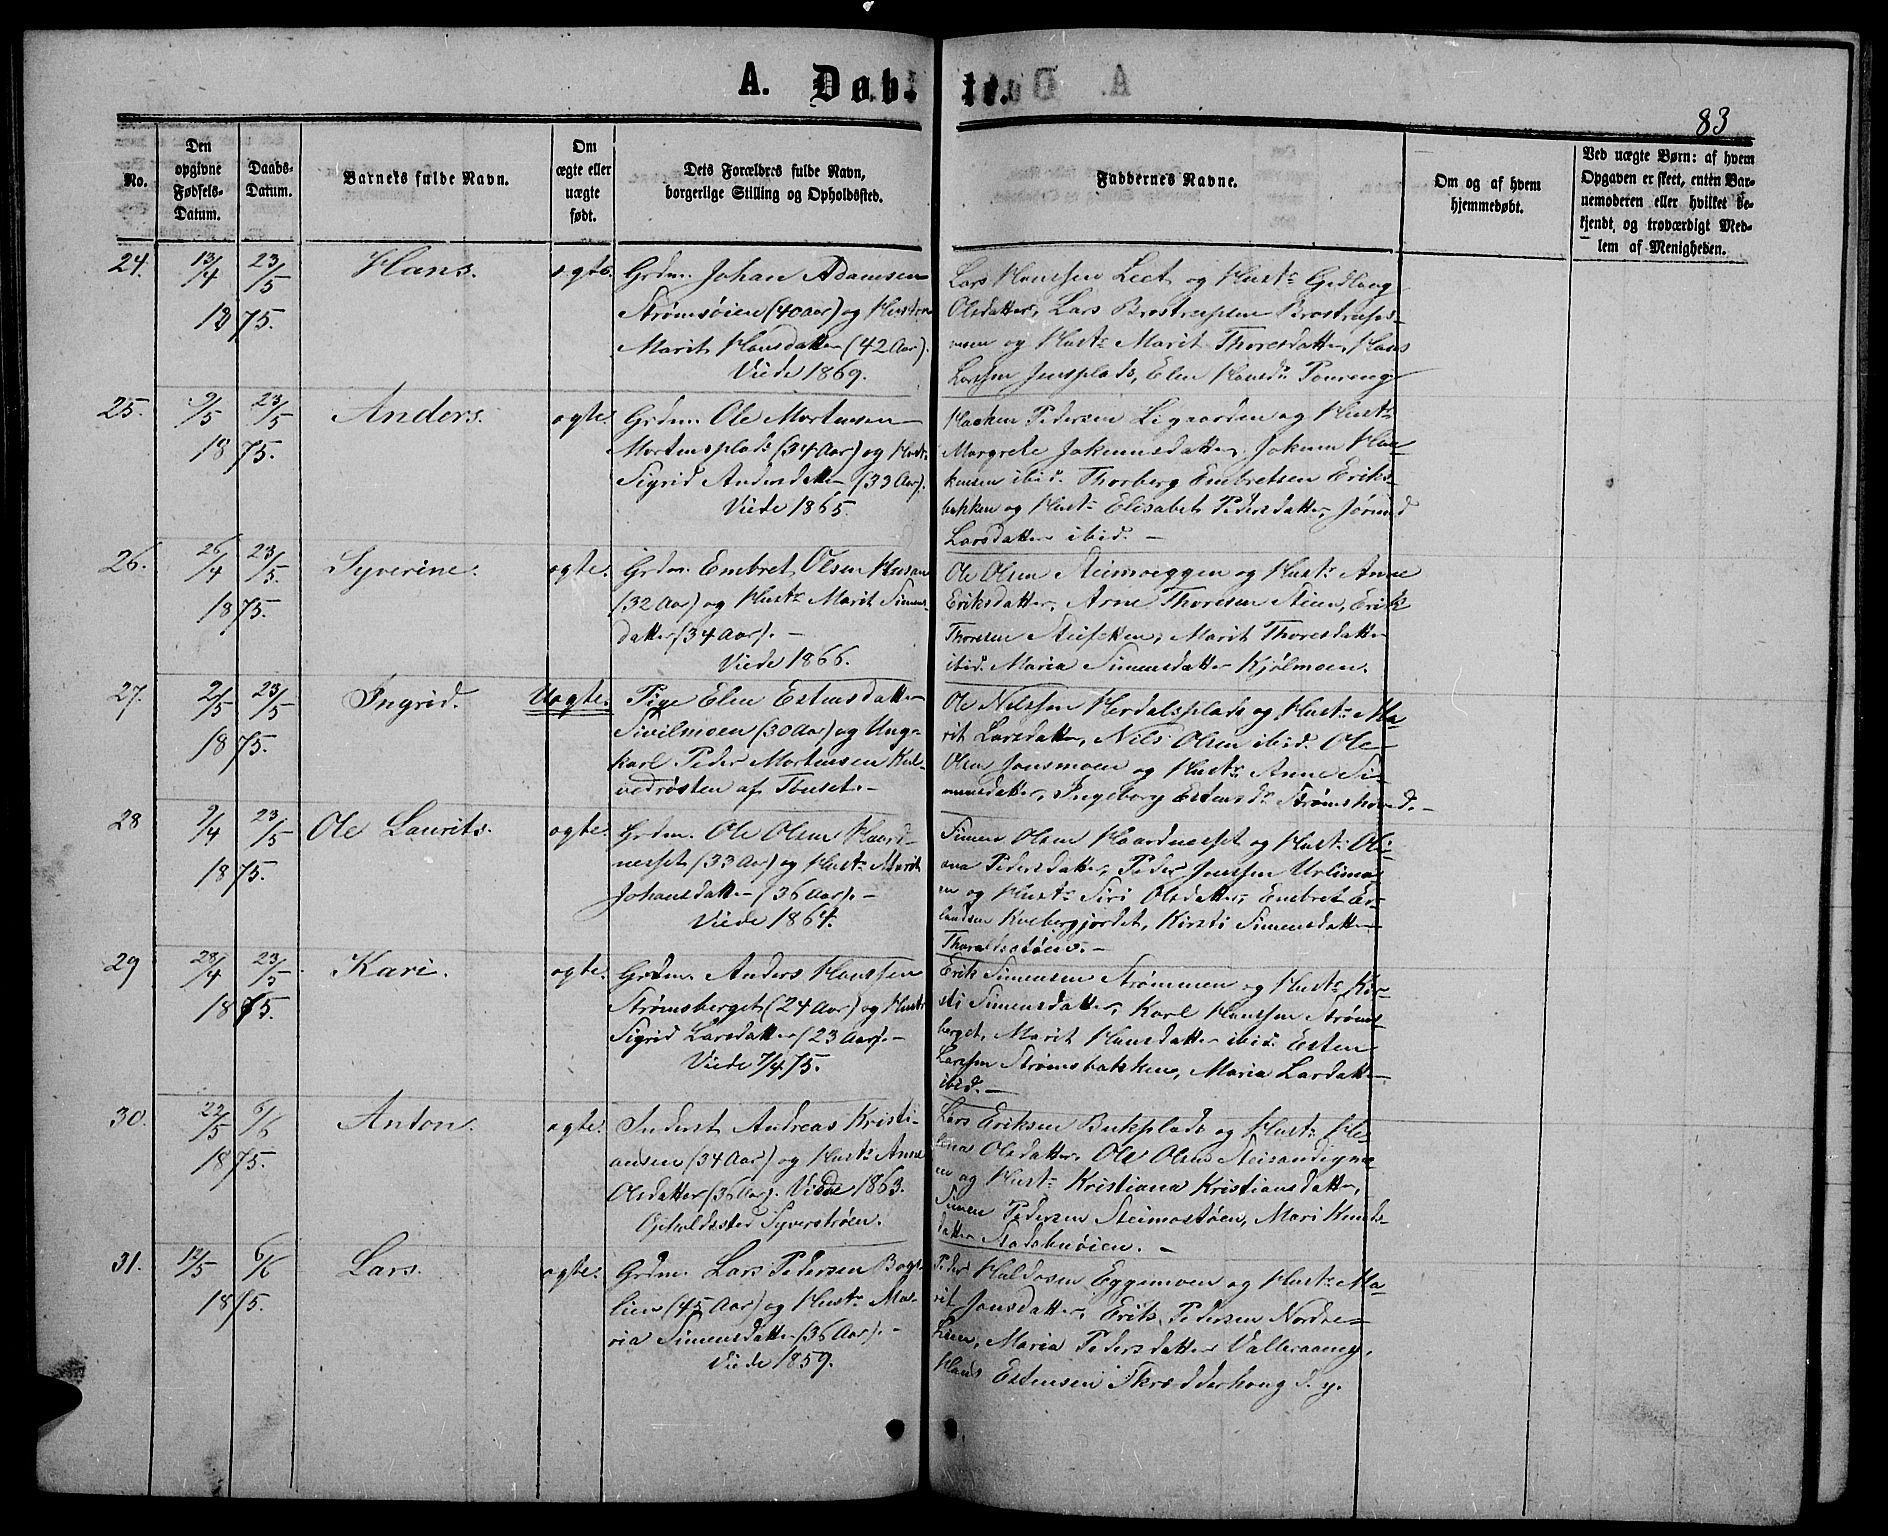 A. Døbte.
83
No.
Den opgivne Fødsels-Datum.
Daabs-Datum.
Barnets fulde Navn.
Om ægte eller uægte født.
Dets Forældres fulde Navn, borgerlige Stilling og Opholdssted.
Faddernes Navne.
Om og af hvem hjemmedøbt.
Ved uægte Børn: af hvem Opgaven er skeet, enten Barnemoderen eller hvilket bekjendt og troværdigt Medlem af Menigheden.
24. 13/4 23/5 1875. Hans. ægte.
Grdm. Johan Adamsen
Strømsøien (40 Aar) og Hustru
Marit Hansdatter (42 Aar).
Viede 1869.
Lars Hanssen Leet og Hustr.
Olsdatter, Lars
og Hustr. Marit Thoresdatter, Hans
Larssen Jensplads, Elen Hansd.
25. 9/5 23/5 1875. Anders. ægte.
Grdm. Ole Mortensen
Mortensplads (34 Aar) og Hustr.
Sigrid Andersdatter (33 Aar).
Viede 1865.
Haaken Pedersen Ligaarden og Hustr.
Margrete Jokumsdatter, Jokum Haa-
kensen ibid. Thorberg Embretsen Eriks-
bakken og Hustr. Elisabet Pedersdatter, Jørund
Larsdatter ibid. -
26. 26/4 23/5 1875. Syverine. ægte.
Grdm. Embret Olsen Husan
(32 Aar) og Hustr. Marit Simens-
datter (34 Aar). -
Viede 1866.
Ole Olsen Steimoeggen og Hustr. Anne
Eriksdatter, Arne Thoresen Steien, Erik
Thoresen Marit Thoresdatter
ibid. Maria Simensdatter Kjølmoen.
27. 2/5 23/5 1875. Ingrid. Uægte.
Pige Elen Estensdatter
Sivilmoen (30 Aar) og Ung-
karl Peder Mortensen Kul-
vedrøsten af Tønset. -
Ole Nilssen Herdalsplads og Hustr. Ma-
rit Larsdatter, Nils Olsen ibid. Ole
Olsen Jonsmoen og Hustr. Anne Si-
mensdatter, Ingeborg Estensd. Strømshoved. -
28 9/4 23/5 1875. Ole Laurits. ægte.
Grdm. Ole Olsen Haard-
nesset (33 Aar) og Hustr. Marit
Johansdatter (36 Aar). -
Viede 1864.
Simen Olsen Haardnesset og Hustr. Oli-
ana Pedersdatter, Peder Jonssen Urlimo-
en og Hustr. Siri Olsdatter, Embret Er-
landsen Kvebergjordet, Kirsti Simensdatter
Thoraldsstøien. -
29 28/4 23/5 1875. Kari. ægte.
Grdm. Anders Hanssen
Strømsberget (24 Aar) og Hustr.
Sigrid Larsdatter (23 Aar). -
Viede 7/4 75.
Erik Simensen Strømmen og Hustr. Kir-
sti Simensdatter, Karl Hanssen Strøms-
berget, Marit Hansdatter ibid. Esten
Larssen Strømsbakken, Maria Larsdatter
ibid. -
30. 22/5 6/6 1875. Anton. ægte.
Inderst Andreas Kristi-
ansen (34 Aar) og Hustr. Anne
Olsdatter (36 Aar). Viede 1863.
Opholdssted Syverstrøen.
Lars Eriksen Bukplads og Hustr. He-
lena Olsdatter, Ole Olsen
og Hustr. Kristiana Kristiansdatter,
Simen Pedersen Steimostøen, Mari Knuts-
datter
31. 12/5 6/6 1875. Lars. ægte.
Grdm. Lars Pedersen Bagt-
lien (45 Aar) og Hustr. Ma-
ria Simensdatter (36 Aar). -
Viede 1859.
Peder Haldosen Eggemoen og Hustr. Ma-
rit Jonsdatter, Erik Pedersen Nordre-
lien, Maria Pedersdatter
Hans Estensen Skrædderhaug d. y.